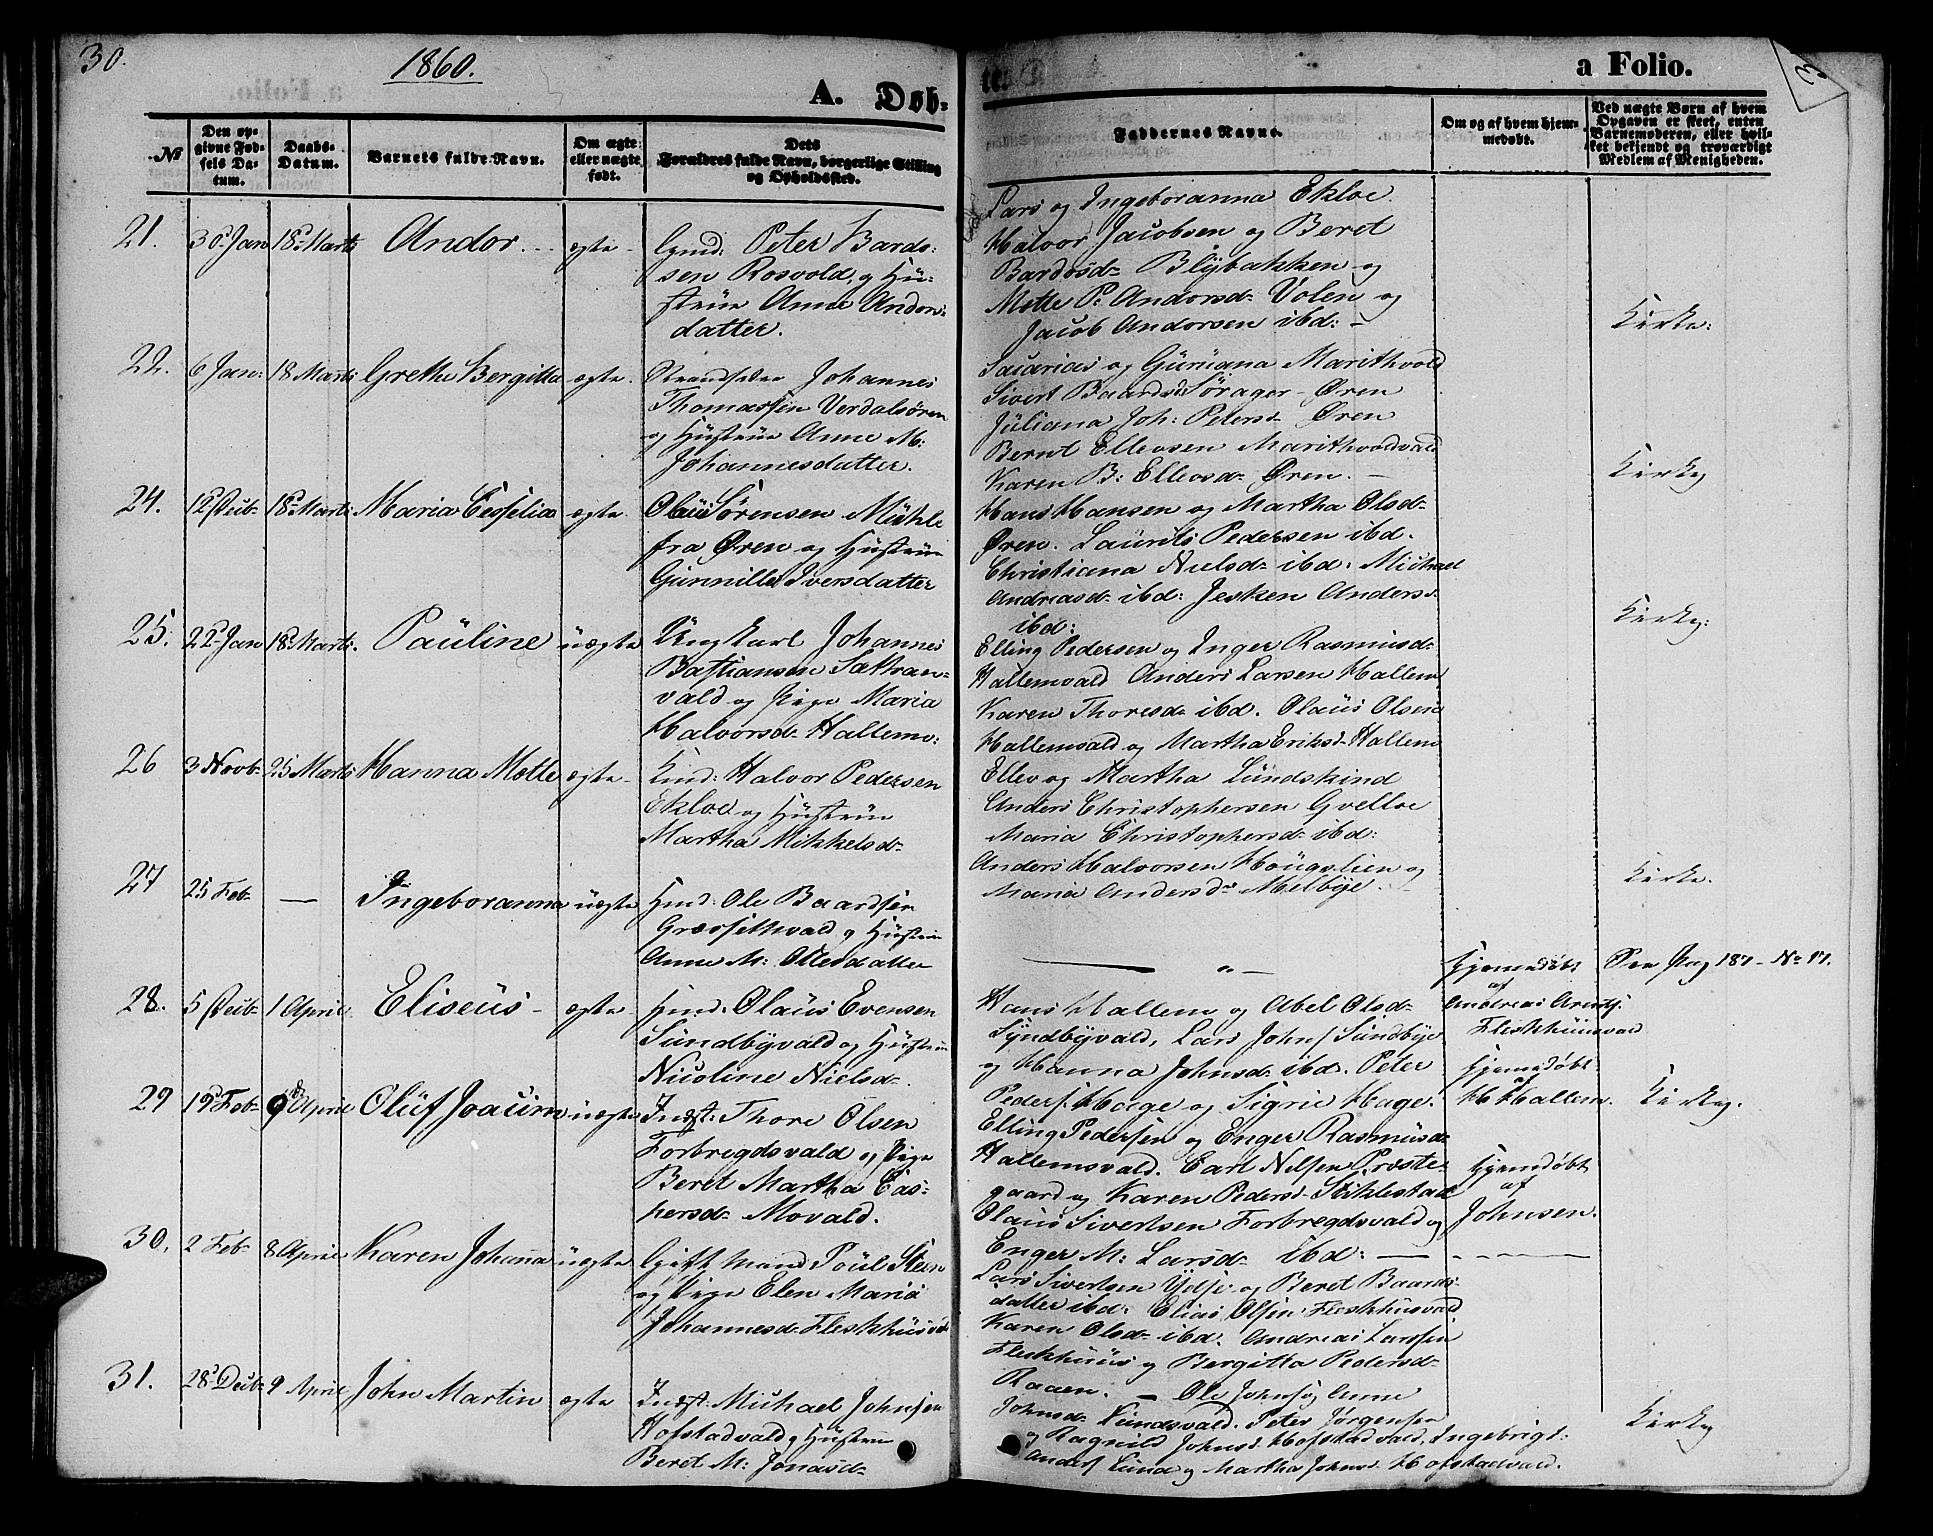 30.
1860.
A. Døb-
te.
a Folio.
No
Den op-
givne Fød-
sels Da-
tum.
Daabs-
Datum.
Barnets fulde Navn.
Om ægte
eller uægte
født.
Dets
Forældres fulde Navn, borgerlige Stilling
og Opholdssted.
Faddernes Navne.
Om og af hvem hjem-
medøbt.
Ved uægte Børn af hvem
Opgaven er skeet, enten
Barnemoderen, eller hvil-
ket bekjendt og troværdigt
Medlem af Menigheden.
21.
30 Jan
18 Marts
Andor.
ægte
Peter Bards-
sen Rosvold, og Hu-
strue Anne Andors-
datter.
Lars og Ingeboranna Ekloe.
Halvor Jacobsen og Beret
Bardosd- Blybakken og
Mette P. Andorsd- Volen og
Jacob Andorsen ibd:
Kirke:
22.
6 Jan:
18 Marts
Grethe Bergitta
ægte.
Strandsidder Johannes
Thomassen Verdalsøren
og Hustrue Anne M:
Johannesdatter.
Sacarias og Guruana Marithvold
Sivert Baards. Sørager - Øren
Juliana Joh: Petersd- Øren
Bernt Ellevsen Marithvoldvald
Karen B: Ellevsd- Øren.
Kirke
24.
12 Deeb-
18 Marts
Maria Cesselia
ægte.
Olaus Sørensen Mikle
fra Øren og Hustrue
Gunnille Iversdatter
Hans Hansen og Martha Olsd-
Øren. Laurits Pedersen ibd.
Christiana Nielsd- ibd: Michael
Andreasd- ibd: Jesken Andersd
ibd:
Kirke:
25.
22 Jan
18 Marts.
Pauline
uægte
Ungkarl Johannes
Bastiansen Sathran-
vald og Pige Maria
Halvorsd- Hallem:
Elling Pedersen og Inger Rasmusd-
Hallemvald Anders Larsen Hallem
Karen Thoresd- ibd. Olaus Olsen
Hallemsvald og Martha Eriksd- Hallem
26
3 Novb-
25 Marts
Hanna Mette
ægte
Halvor Pedersen
Ekloe og Hustrue
Martha Mikkelsd-
Ellev og Martha Lundskind
Anders Christophersen Gvelloe
Maria Christophersd- ibd:
Anders Halvorsen Hougslien og
Maria Andersd- Melbye.
Kirke.
27
25 Feb-
—
Ingeboranna
uægte
Hmd: Ole Baardsen
Græssethvald og Hustrue
Anne M: Ollesdatter
— „ —
Hjemmdøbt
af
Andreas Arentz.
Fleskhuusvald
See Pag 187 - No 17.
28.
5 Deeb-
1 April
Eliseus
ægte
Hmd: Olaus Evensen
Sundbyvald og Hustrue
Nicoline Nielsd-.
Hans Hallem og Abel Olsd-
Syndbyvald, Lars Johns. Sundbye
og Hanna Johnsd- ibd. Peter
Peders. Hage og Sigrie Hage.
Hjemdøbt
af
H Hallem.
Kirke.
29
19 Feb-
9 April
Oluf Joacim
uægte
Indst: Thore Olsen
Forbregdsvald og Pige
Beret Martha Cas-
persd- Movald.
Elling Pedersen og Enger Rasmusd-
Hallemsvald. Carl Nilsen Præste-
gaard og Karen Pedersd- Stiklestad
Olaus Sivertsen Forbregdsvald og
Enger M: Larsd- ibd:
Hjemdøbt
af
Johnsen.
30.
2 Feb-
8 April
Karen Johanna
uægte
Gift Mand Poul Steen
og Pige Elen Maria
Johannesd- Fleskhusvd
Lars Sivertsen Ydse og Beret Baards-
datter ibd. Elias Olsen Fleskhusvald
Karen Olsd- ibd. Andreas Larssen
Fleskhuus og Bergitta Pedersd-
Raaen.
31.
28 Deeb-
9 April
John Martin
ægte
Indst: Michael Johnsen
Hofstadvald og Hustrue
Beret M: Jonasd-
Ole Johns. og Anne
Johnsd- Kundsvald. Peter Jørgensen
og Ragnild Johnsd. Hofstadvald, Ingebrigt
Anders. Lund og Martha Johnsd. Hofstadvald.
Kirke